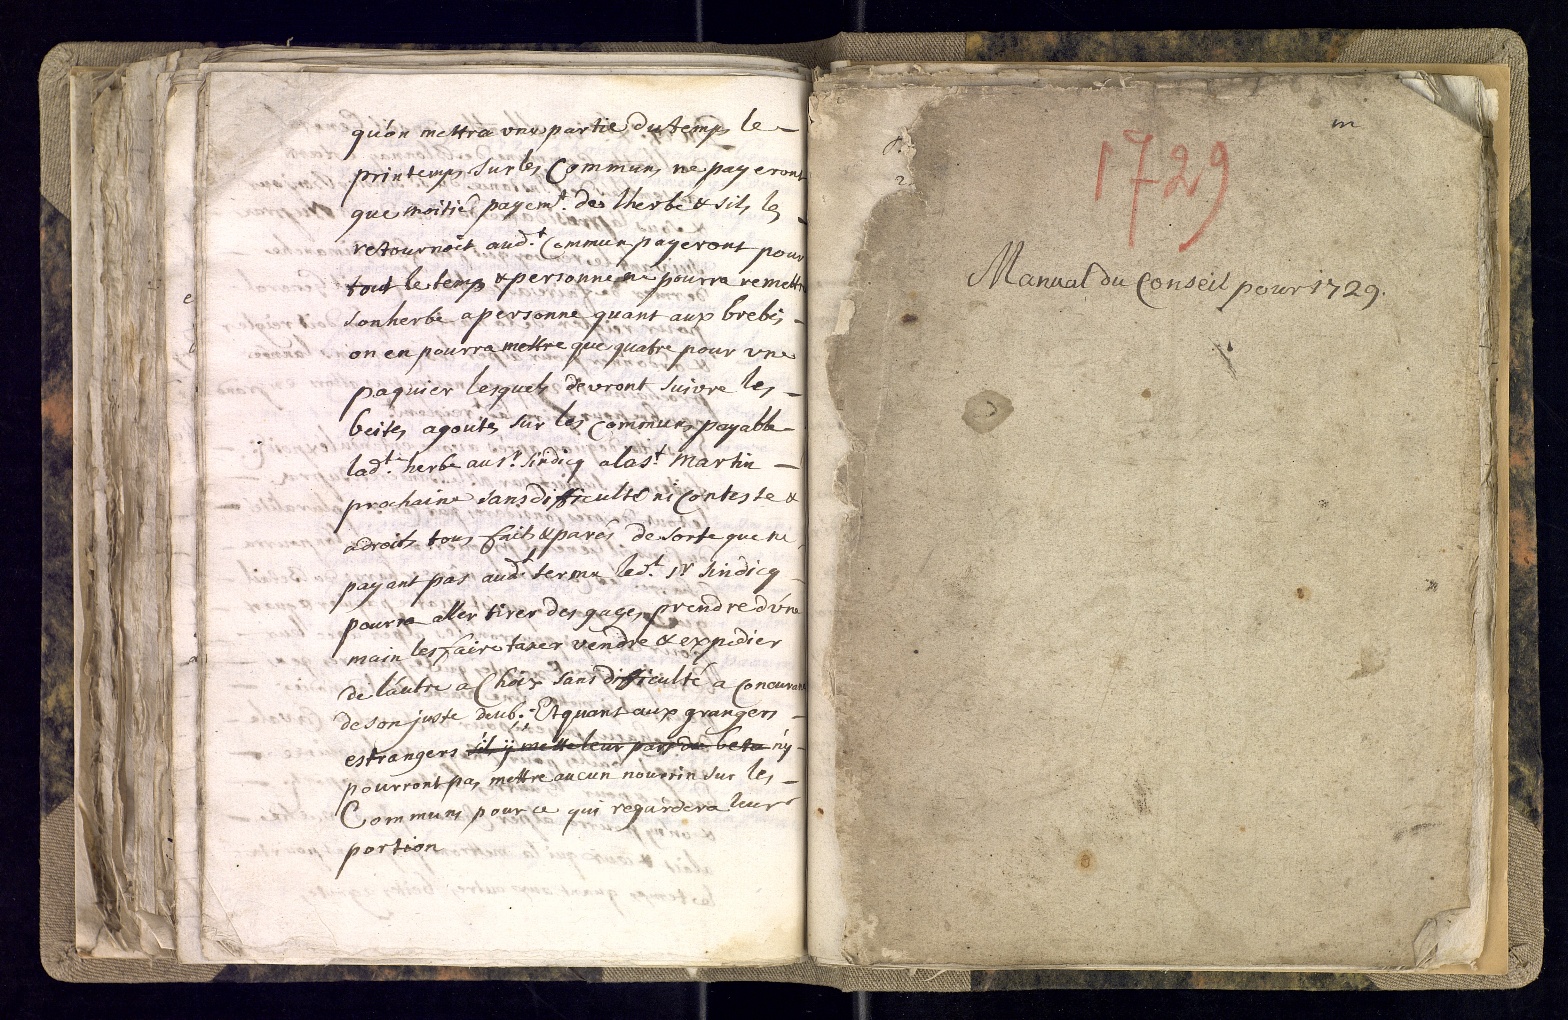 qu'on mettra une partie du temps le
printemps sur les Communs ne payeront
que moitié payemt. de l'herbe & sils les
retournoit audt. Commun payeront pour
tout le temp & personne ne pourra remettre
son herbe a personne quant aux brebis
on en pourra mettre que quatre pour une
paquier lesquels devront suivre les
beites agoutes sur les communs payable
ladt. herbe au sr. sindicq a la st. Martin
prochaine sans difficulté ni conteste &
a droits tous faits & parés de sorte que ne
payant pas audt terme ledt. sr sindicq
pourra aller tirer des gages prendre d'une
main les faire taxer vendre & expedier
de l'autre a choix sans difficulté a concurance
de son juste deub. Et quant aux grangers
estrangers n'y
pourront pas mettre aucun nourrin sur les
Communs pour ce qui regardera leurs
portion
m
1729
Manual du Conseil pour 1729.